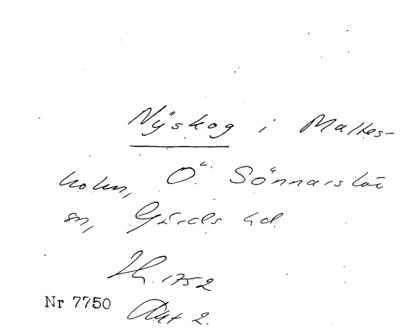 Nÿskog i Maltes-
holm, Ö. Sönnarslöv
sn, Gärds hd.
Jh. 1752
Nr 7750 Akt 2.